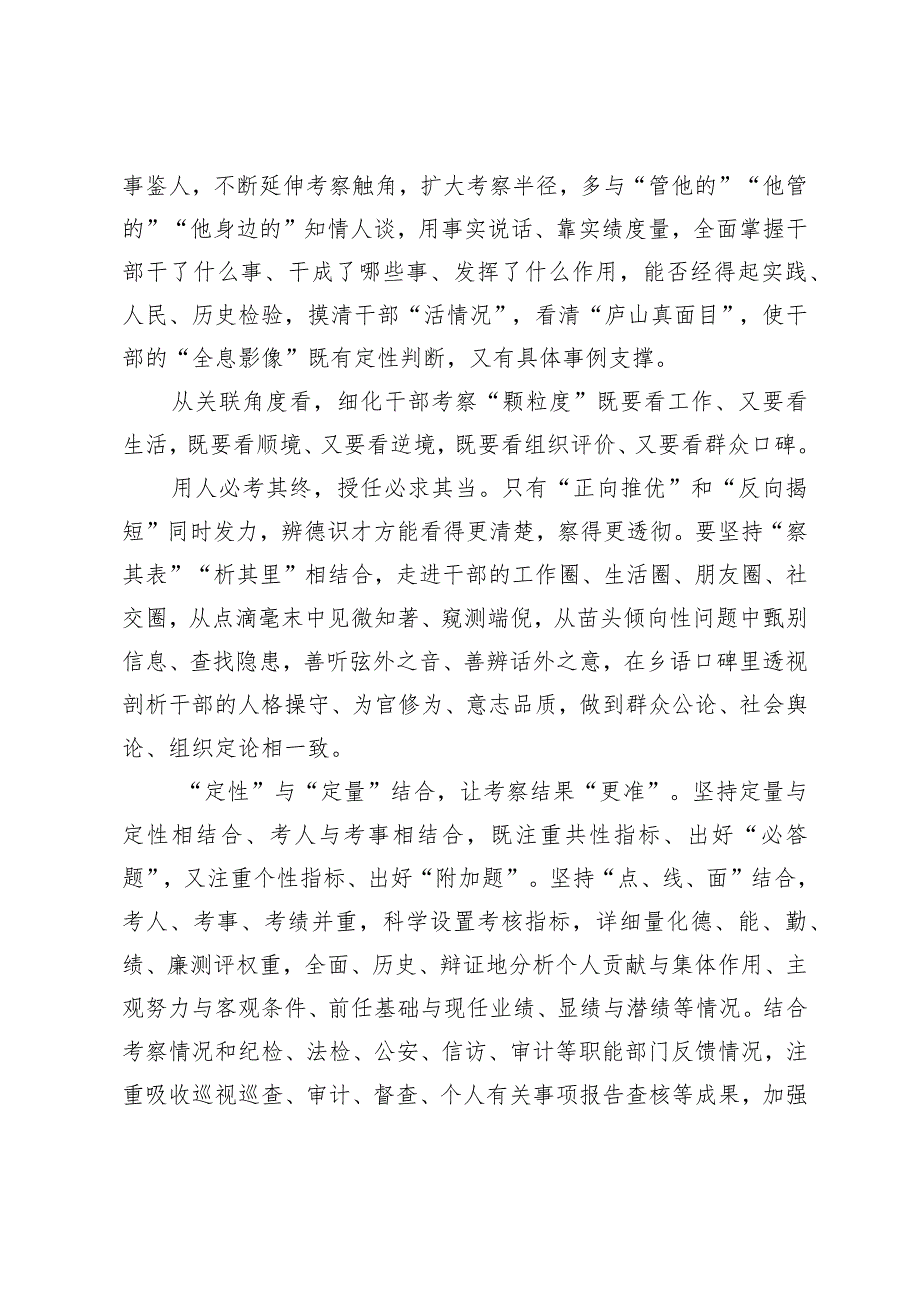 事鉴人，不断延伸考察触角，扩大考察半径，多与“管他的”“他管
的”“他身边的”知情人谈，用事实说话、靠实绩度量，全面掌握干
部干了什么事、干成了哪些事、发挥了什么作用，能否经得起实践、
人民、历史检验，摸清干部“活情况”，看清“庐山真面目”，使干
部的“全息影像”既有定性判断，又有具体事例支撑。
从关联角度看，细化干部考察“颗粒度”既要看工作、又要看
生活，既要看顺境、又要看逆境，既要看组织评价、又要看群众口碑。
用人必考其终，授任必求其当。只有“正向推优”和“反向揭
短”同时发力，辨德识才方能看得更清楚，察得更透彻。要坚持“察
其表”“析其里”相结合，走进干部的工作圈、生活圈、朋友圈、社
交圈，从点滴毫末中见微知著、窥测端倪，从苗头倾向性问题中甄别
信息、查找隐患，善听弦外之音、善辨话外之意，在乡语口碑里透视
剖析干部的人格操守、为官修为、意志品质，做到群众公论、社会舆
论、组织定论相一致。
“定性”与“定量”结合，让考察结果“更准”。坚持定量与
定性相结合、考人与考事相结合，既注重共性指标、出好“必答
题”，又注重个性指标、出好“附加题”。坚持“点、线、面”结合，
考人、考事、考绩并重，科学设置考核指标，详细量化德、能、勤、
绩、廉测评权重，全面、历史、辩证地分析个人贡献与集体作用、主
观努力与客观条件、前任基础与现任业绩、显绩与潜绩等情况。结合
考察情况和纪检、法检、公安、信访、审计等职能部门反馈情况，注
重吸收巡视巡查、审计、督查、个人有关事项报告查核等成果，加强